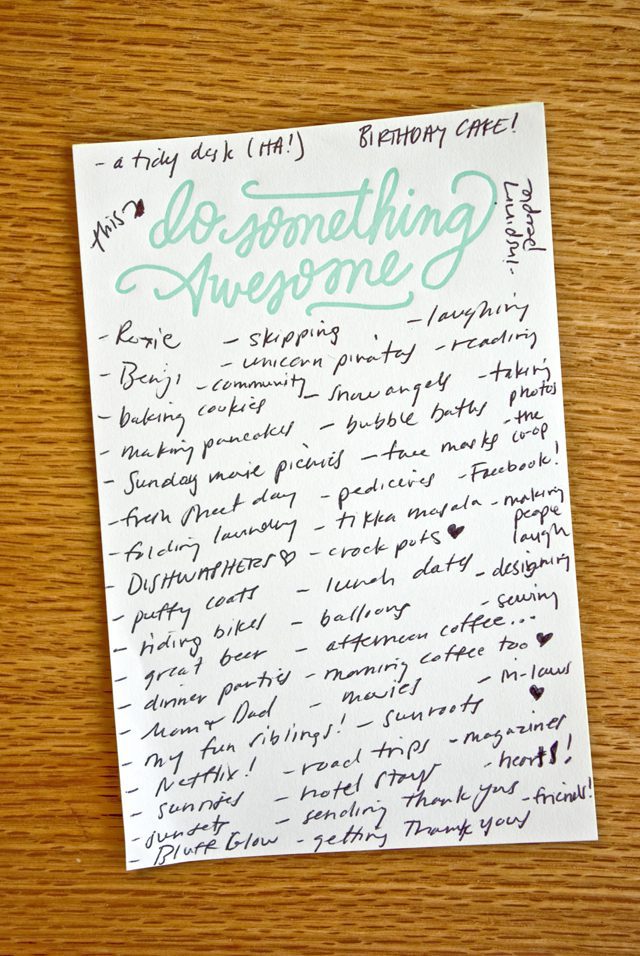 - a tidy desk (HA!) BIRTHDAY CAKE!
this
do something
Awesome
- inspiring people
- Roxie - skipping - laughing
- Benji - unicorn piñatas - reading
- baking cookies - community - snow angels - taking photos
- making pancakes - bubble baths - the co-op
- Sunday movie picnics - face masks - Facebook!
- fresh sheet day - pedicures - making people laugh
- folding laundry - tikka masala
- DISHWASHERS ♡ - crock pots ♥ - designing
- puffy coats - lunch dates - sewing
- riding bikes - balloons
- great beer - afternoon coffee...
- dinner parties - morning coffee too ♥
- Mom & Dad - movies - in-laws ♥
- my fun siblings! - sunroofs
- Netflix! - road trips - magazines
- sunrises - hotel stays - hearts!
- sunsets - sending thank yous - friends!
- Bluff Glow - getting thank yous